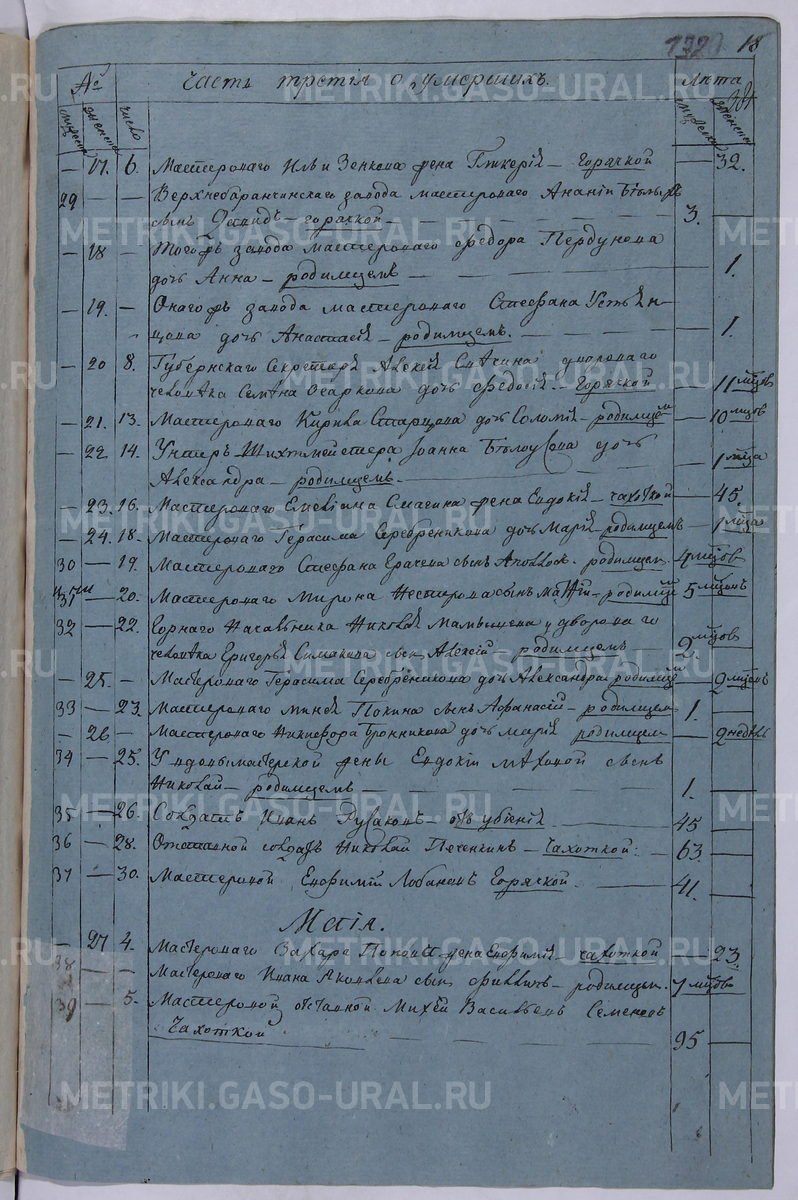 1320 18
№ Часть третiя о умершихъ. Лѣта
мужеска женска число мужеска женска
— 17. 6. Мастероваго Ильи Зенкова жена Гликерiя — горячкой — 32.
29 — — Верхнебаранчинскаго завода мастероваго Ананiи
сынъ Давидъ — горячкой — 3. —
— 18 — Тогожъ завода мастероваго Федора Пердунова
дочь Анна — родимцемъ — 1.
— 19. — Онагожъ завода мастероваго Стефана
дочь Анастасiя — родимцемъ. — 1.
— 20 8. Губернскаго Секретаря Алексѣя двороваго
человѣка Семена дочь Федосiя — Горячкой — 11 мцовъ
— 21. 13. Мастероваго Кирила Старцова дочь Соломiя — родимцемъ — 10 мцовъ
— 22 14. Унтеръ Шихтмейстера Iоанна Бѣлоусова дочь
Александра — родимцемъ — 1 мца
— 23. 16. Мастероваго Емелiяна Смагина жена Евдокiя — чахоткой — 45
— 24. 18. Мастероваго Герасима Серебреникова дочь Марiя — родимцемъ — 1 мца
30 — 19. Мастероваго Стефана сынъ родимцем. 4 мцовъ
31 — 20. Мастероваго Мирона Нестерова сынъ — родимцемъ 5 мцовъ
32 — 22. Горнаго Начальника Николая Мамышева двороваго
человѣка Григорья Симакина сынъ Алексiй — родимцемъ 2 мцовъ
— 25. — Мастероваго Герасима Серебреникова дочь Александра родимцемъ — 2 мцовъ
33 — 23. Мастероваго Минея Попина сынъ Афанасiй — родимцемъ 1. —
— 26 — Мастероваго Никифора Бронникова дочь Марiя родимцемъ — 2 недѣль
34 — 25. У вдовы мастерской жены Евдокiи сынъ
Николай — родимцемъ — 1.
35 — 26. Солдатъ Иванъ Русаковъ отъ убiенiя 45
36 — 28. Отставной солдатъ Николай Печенкинъ — Чахоткой: — 63.
37 — 30. Мастеровой Ефимiй Лобановъ Горячкой. 41.
Маiя.
— 27 4. Мастероваго Захара Попова жена — чахоткой — 23.
38 — — Мастероваго Ивана Яковлева сынъ Филипъ — родимцем. 7 мцовъ
39 — 5. Мастеровой отставной Михей Васильевъ Семеновъ
Чахоткой 95 —
METRIKI.GASO-URAL.RU